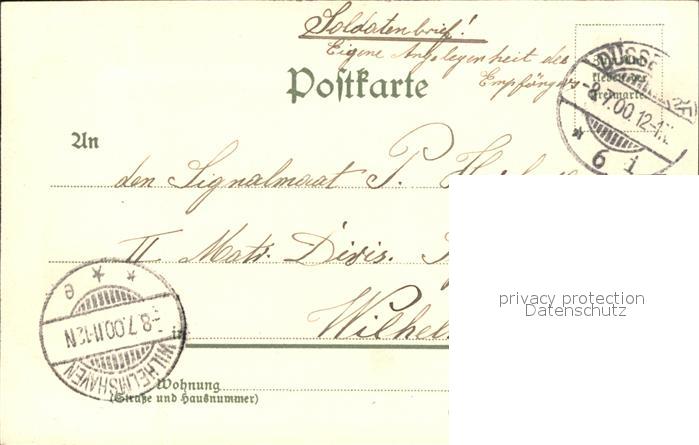 Soldatenbrief!
Eigene Angelegenheit des
Empfängers
Postkarte
DÜSSE
-8.7.00.12-1
* 6 i
An
den Signalmaat P.
II Matr. Divis.
Wilhel
in
WILHELMSHAVEN
-8.7.00.11-12N
* * e
Wohnung
(Straße und Hausnummer)
privacy protection
Datenschutz